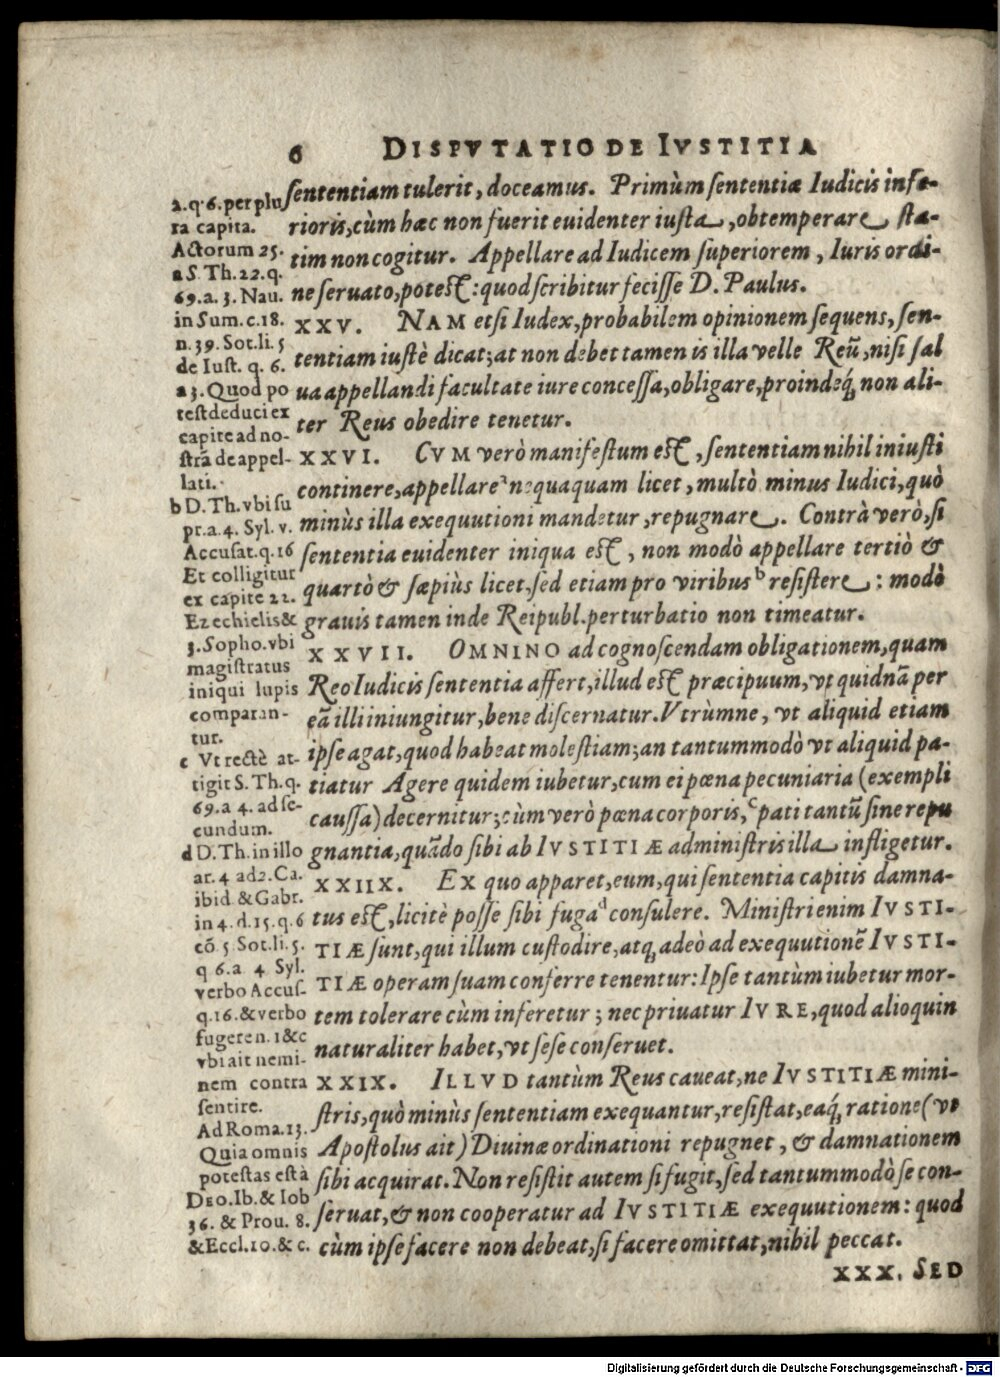 6 DISPVTATIO DE IVSTITIA
sententiam tulerit, doceamus. Primùm sententiæ Iudicis infe-
rioris, cùm hæc non fuerit euidenter iusta, obtemperare sta-
tim non cogitur. Appellare ad Iudicem superiorem, Iuris ordi-
ne seruato, potest: quod scribitur fecisse D. Paulus.
XXV. NAM etsi Iudex, probabilem opinionem sequens, sen-
tentiam iustè dicat; at non debet tamen is illa velle Reũ, nisi sal
ua appellandi facultate iure concessa, obligare, proindeq́ non ali-
ter Reus obedire tenetur.
XXVI. CVM verò manifestum est, sententiam nihil iniusti
continere, appellare a nequaquam licet, multò minus Iudici, quò
minùs illa exequutioni mandetur, repugnare. Contrà verò, si
sententia euidenter iniqua est, non modò appellare tertiò &
quartò & sæpiùs licet, sed etiam pro viribus b resistere: modò
grauis tamen inde Reipubl. perturbatio non timeatur.
XXVII. OMNINO ad cognoscendam obligationem, quam
Reo Iudicis sententia affert, illud est præcipuum, vt quidnã per
eã illi iniungitur, bene discernatur. Vtrùmne, vt aliquid etiam
ipse agat, quod habeat molestiam; an tantummodò vt aliquid pa-
tiatur Agere quidem iubetur, cum ei pœna pecuniaria (exempli
caussa) decernitur; cùm verò pœna corporis, c pati tantũ sine repu
gnantia, quãdo sibi ab IVSTITIÆ administris illa infligetur.
XXIIX. EX quo apparet, eum, qui sententia capitis damna-
tus est, licitè posse sibi fuga d consulere. Ministri enim IVSTI-
TIÆ sunt, qui illum custodire, atq́ adeò ad exequutionẽ IVSTI-
TIÆ operam suam conferre tenentur: Ipse tantùm iubetur mor-
tem tolerare cùm inferetur; nec priuatur IVRE, quod alioquin
naturaliter habet, vt sese conseruet.
XXIX. ILLVD tantùm Reus caueat, ne IVSTITIÆ mini-
stris, quò minùs sententiam exequantur, resistat, eaq́ ratione (vt
Apostolus ait) Diuinæ ordinationi repugnet, & damnationem
sibi acquirat. Non resistit autem si fugit, sed tantummodò se con-
seruat, & non cooperatur ad IVSTITIÆ exequutionem: quod
cùm ipse facere non debeat, si facere omittat, nihil peccat.
XXX. SED
2. q. 6. per plu
ra capita.
Actorum 25.
a S. Th. 22. q.
69. a. 3. Nau.
in Sum. c. 18.
n. 39. Sot. li. 5
de Iust. q. 6.
a 3. Quod po
test deduci ex
capite ad no-
strã de appel-
lati.
b D. Th. vbi su
pr. a. 4. Syl. v.
Accusat. q. 16
Et colligitur
ex capite 22.
Ezechielis &
3. Sopho. vbi
magistratus
iniqui lupis
comparan-
tur.
c Vt rectè at-
tigit S. Th. q.
69. a 4. ad se-
cundum.
d D. Th. in illo
ar. 4 ad 2. Ca.
ibid & Gabr.
in 4. d. 15. q. 6
cõ. 5 Sot. li. 5.
q 6. a 4 Syl.
verbo Accus.
q. 16. & verbo
fugere n. 1 &c
vbi ait nemi-
nem contra
sentire.
Ad Roma. 13.
Quia omnis
potestas est à
DEO. Ib. & Iob
36. & Prou. 8.
& Eccl. 10. & c.
Digitalisierung gefördert durch die Deutsche Forschungsgemeinschaft - DFG